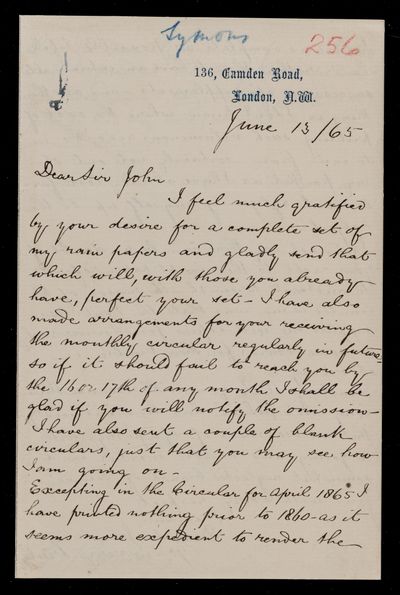 Symons
256
136, Camden Road,
London, N.W.
June 13/65
Dear Sir John
I feel much gratified
by your desire for a complete set of
my rain papers and gladly send that
which will, with those you already
have, perfect your set - I have also
made arrangements for your receiving
the monthly circular regularly in future -
so if it should fail to reach you by
the 16 or 17th of any month I shall be
glad if you will notify the omission -
I have also sent a couple of blank
circulars, just that you may see how
I am going on -
Excepting in the Circular for April 1865 I
have printed nothing prior to 1860 - as it
seems more expedient to render the